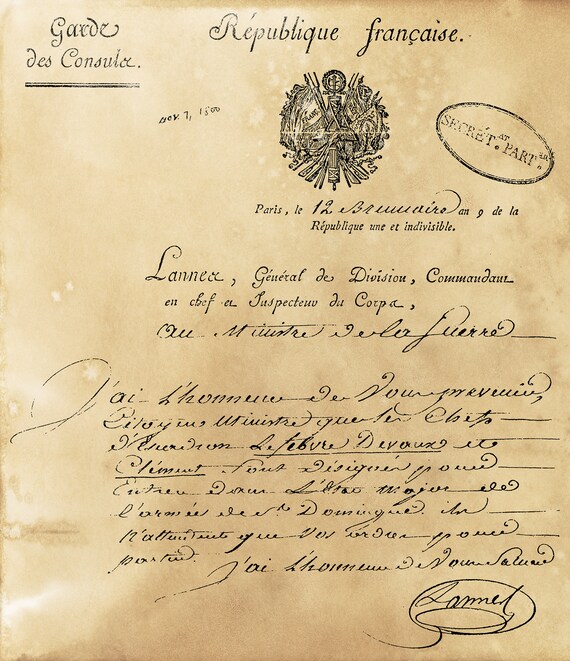 Garde
des Consuls.
République française.
Nov. 7, 1800
SECRÉT.AT PART.ER
Paris, le 12 Brumaire an 9 de la
République une et indivisible.
Lannes, Général de Division, Commandant
en chef et Inspecteur du Corps,
au Ministre de la Guerre
J'ai l'honneur de Vous prévenir,
Citoyen Ministre que les Chefs
d'Escadron Lefebvre Devaux et
Clément sont désignés pour
Entrer dans l'état major de
l'armée de St. Domingue. ils
N'attendent que Vos ordres pour
partir.
J'ai l'honneur de Vous Saluer
Lannes